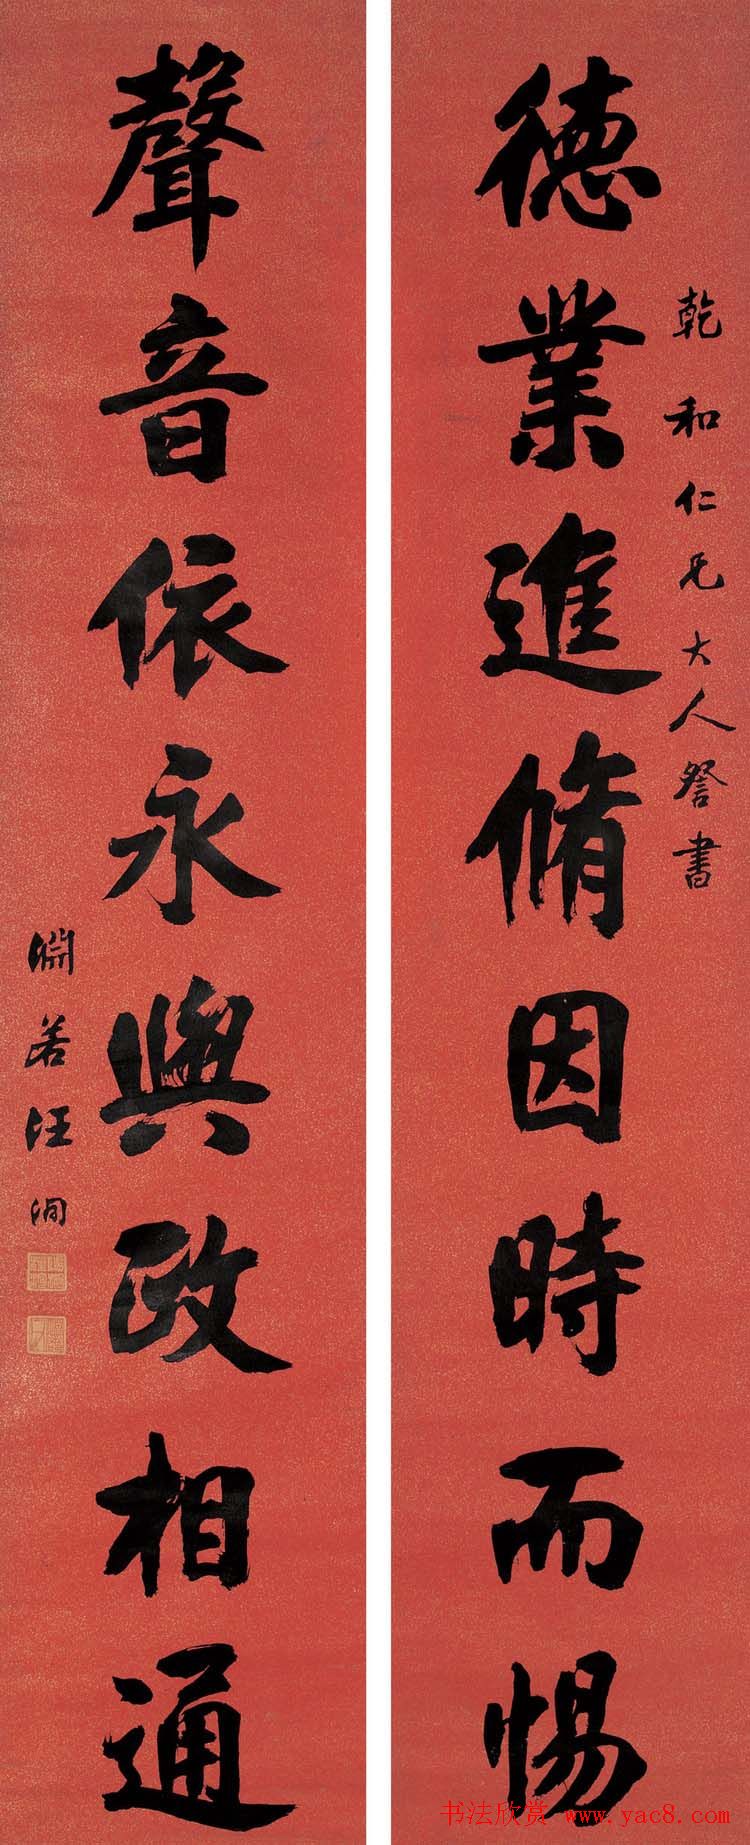 乾和仁兄大人詧書
德業進脩因時而惕
聲音依永與政相通
淵若汪洵
书法欣赏 www.yac8.com